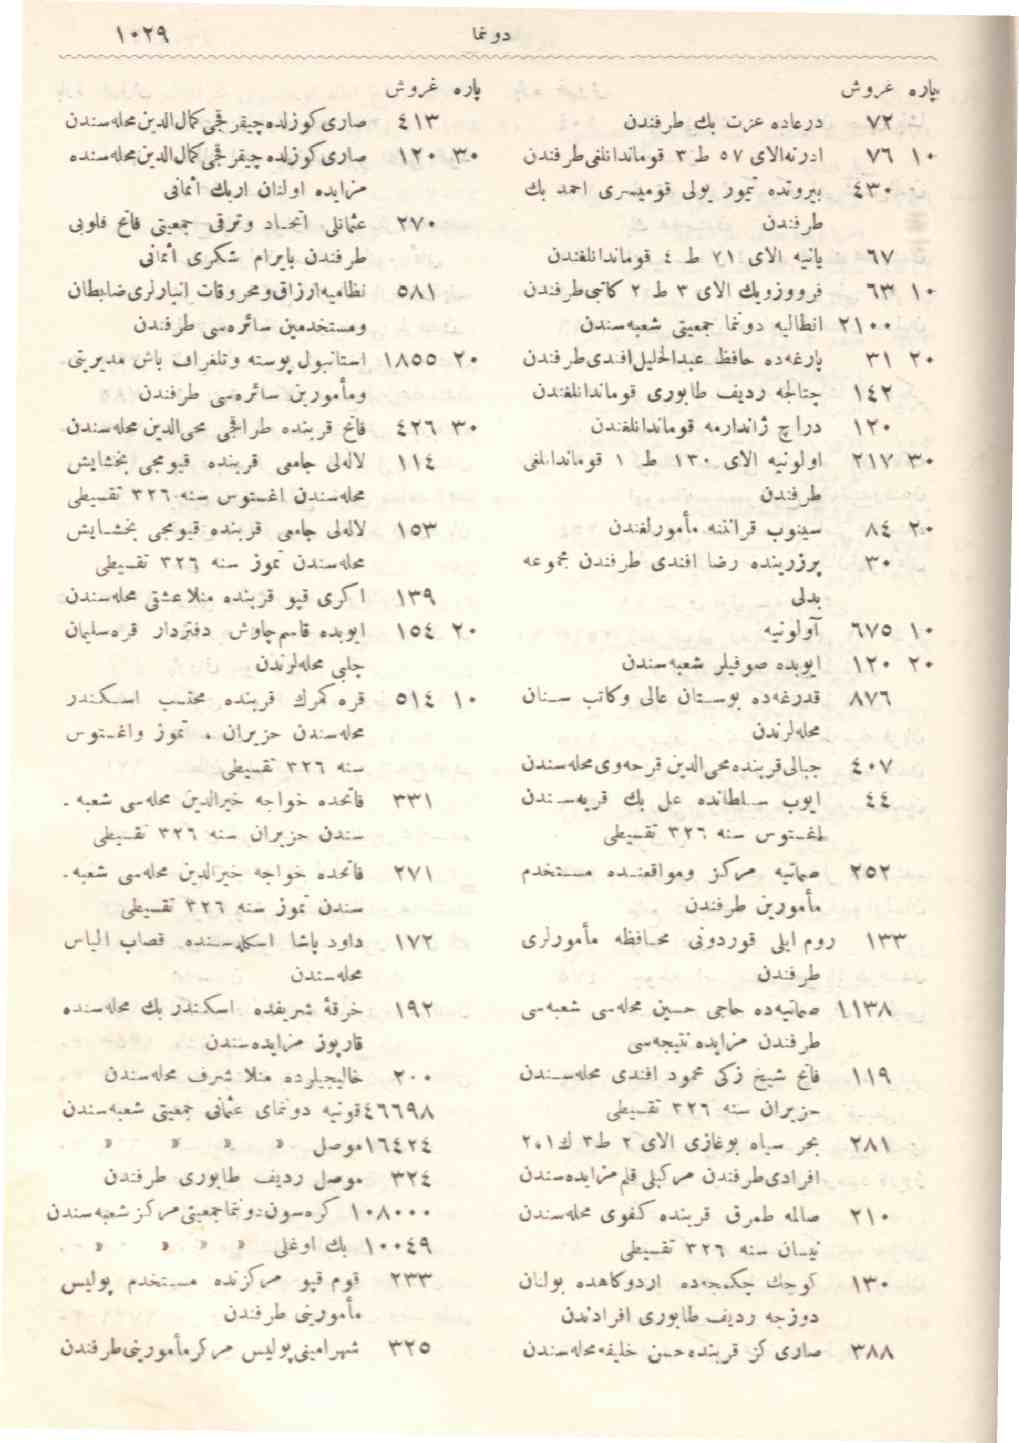 ١٠٢٩
دونما
پاره غروش
٧٢ درعاده عزت بك طرفندن
١٠ ٧٦ ادرنه‌الای ٥٧ ط ٣ قوماندانلغی‌طرفندن
٤٣٠ بیروتده تیمور یولی قومیسری احمد بك
طرفندن
٦٧ یانیه الای ٢١ ط ٤ قوماندانلغندن
١٠ ٦٣ فرووزوبك الای ٣ ط ٢ كاتبی‌طرفندن
٢١٠٠ انطالیه دونما جمعیتی شعبه‌سندن
٢٠ ٣١ پارغه‌ده حافظ عبدالخلیل‌افندی‌طرفندن
١٤٢ چتالجه ردیف طابوری قوماندانلغندن
١٢٠ دراج ژاندارمه قوماندانلغندن
٣٠ ٢١٧ اولونیه الای ١٣٠ ط ١ قوماندانلغی
طرفندن
٢٠ ٨٤ سینوب قرانتنه مأمورلغندن
٣٠ پرزرینده رضا افندی طرفندن مجموعه
بدلی
١٠ ٦٧٥ آولونیه
٢٠ ١٢٠ ایوبده صوفیلر شعبه‌سندن
٨٧٦ قدرغه‌ده بوستان عالی وكاتب سنان
محله‌لرندن
٤٠٧ جبالی‌قربنده‌محی‌الدین قرحه‌وی‌محله‌سندن
٤٤ ایوب سلطانده علی بك قریه‌سندن
اغستوس سنه ٣٢٦ تقسیطی
٢٥٢ صماتیه مركز ومواقعنده مستخدم
مأمورین طرفندن
١٣٣ روم ایلی قوردونی محافظه مأمورلری
طرفندن
١١٣٨ صماتیه‌ده حاجی حسین محله‌سی شعبه‌سی
طرفندن مزایده نتیجه‌سی
١١٩ فاتح شیخ زكی محمود افندی محله‌سندن
حزیران سنه ٣٢٦ تقسیطی
٢٨١ بحر سیاه بوغازی الای ٢ ط٣ ك٢،١
افرادی‌طرفندن مركبلی قلم‌مزایده‌سندن
٢١٠ صالمه طمرق قربنده كفوی محله‌سندن
نیسان سنه ٣٢٦ تقسیطی
١٣٠ كوچك چكمجه‌ده اردوكاهده بولنان
دوزجه ردیف طابوری افرادندن
٣٨٨ صاری كز قربنده‌حسن خلیفه‌محله‌سندن
پاره غروش
٤١٣ صاری‌كوزلده‌چیقرقجی‌كمال‌الدین‌محله‌سندن
٣٠ ١٢٠ صاری‌كوزلده‌چیقرقجی‌كمال‌الدین‌محله‌سنده
مزایده اولنان اریك اثمانی
٢٧٠ عثمانلی اتحاد وترقی جمعیتی فاتح قلوبی
طرفندن بایرام شكری اثمانی
٥٨١ نظامیه‌ارزاق‌ومحروقات انبارلری‌ضابطان
ومستخدمین سائره‌سی طرفندن
٢٠ ١٨٥٥ استانبول پوسته وتلغراف باش مدیریتی
ومأمورین سائره‌سی طرفندن
٣٠ ٤٢٦ فاتح قربنده طراقجی محی‌الدین محله‌سندن
١١٤ لاله‌لی جامعی قربنده قیومجی بخشایش
محله‌سندن اغستوس سنه ٣٢٦ تقسیطی
١٥٣ لاله‌لی جامعی قربنده قیومجی بخشایش
محله‌سندن تموز سنه ٣٢٦ تقسیطی
١٣٩ اكری قپو قربنده منلا عشقی محله‌سندن
٢٠ ١٥٤ ایوبده قاسم‌چاوش دفتردار قره‌سلیمان
چلبی محله‌لرندن
١٠ ٥١٤ قره كمرك قربنده محتسب اسكندر
محله‌سندن حزیران ، تموز واغستوس
سنه ٣٢٦ تقسیطی
٣٣١ فاتحده خواجه خیرالدین محله‌سی شعبه‌
سندن حزیران سنه ٣٢٦ تقسیطی
٢٧١ فاتحده خواجه خیرالدین محله‌سی شعبه‌
سندن تموز سنه ٣٢٦ تقسیطی
١٧٢ داود پاشا اسكله‌سنده قصاب الیاس
محله‌سندن
١٩٢ خرقهٔ شریفده اسكندر بك محله‌سنده
قارپوز مزایده‌سندن
٢٠٠ خالیجیلرده منلا شرف محله‌سندن
٤٦٦٩٨ قونیه دونمای عثمانی جمعیتی شعبه‌سندن
١٦٤٢٤ موصل » » » »
٣٢٤ موصل ردیف طابوری طرفندن
١٠٨٠٠٠ كره‌سون‌دونماجمعیتی‌مركز شعبه‌سندن
١٠٠٤٩ بك اوغلی » » » »
٢٣٣ قوم قپو مركزنده مستخدم پولیس
مأمورینی طرفندن
٣٢٥ شهرامینی‌پولیس مركزمأمورینی‌طرفندن